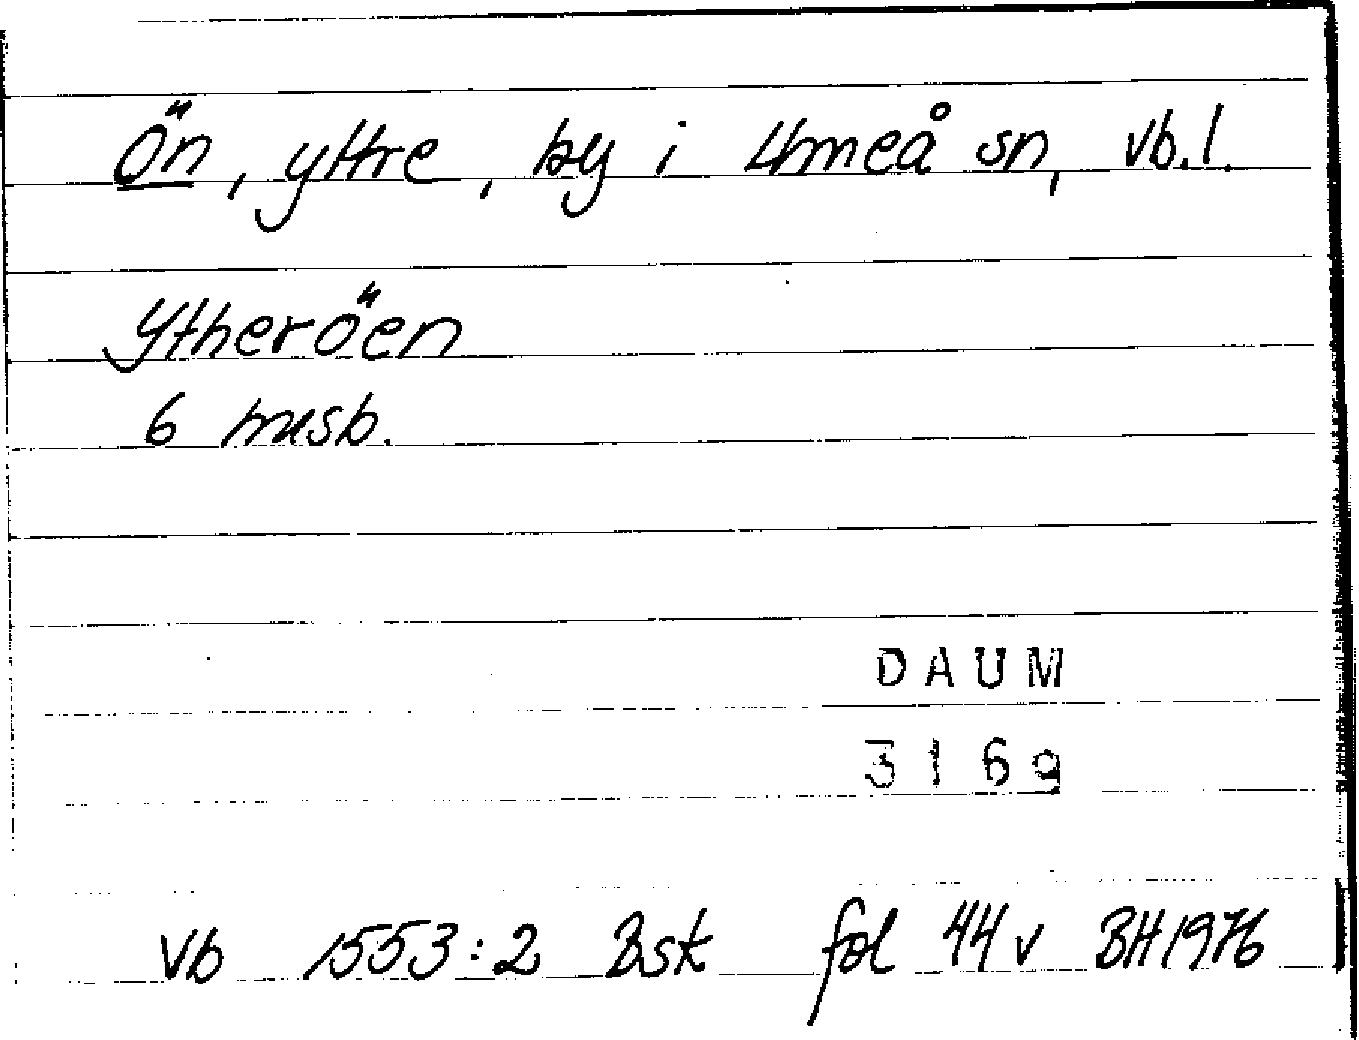 Ön, yttre, by i Umeå sn, Vb.l.
Ytheröen
6 mrsb.
DAUM
3169
Vb 1553:2 Bsk fol 44 v BH 1976